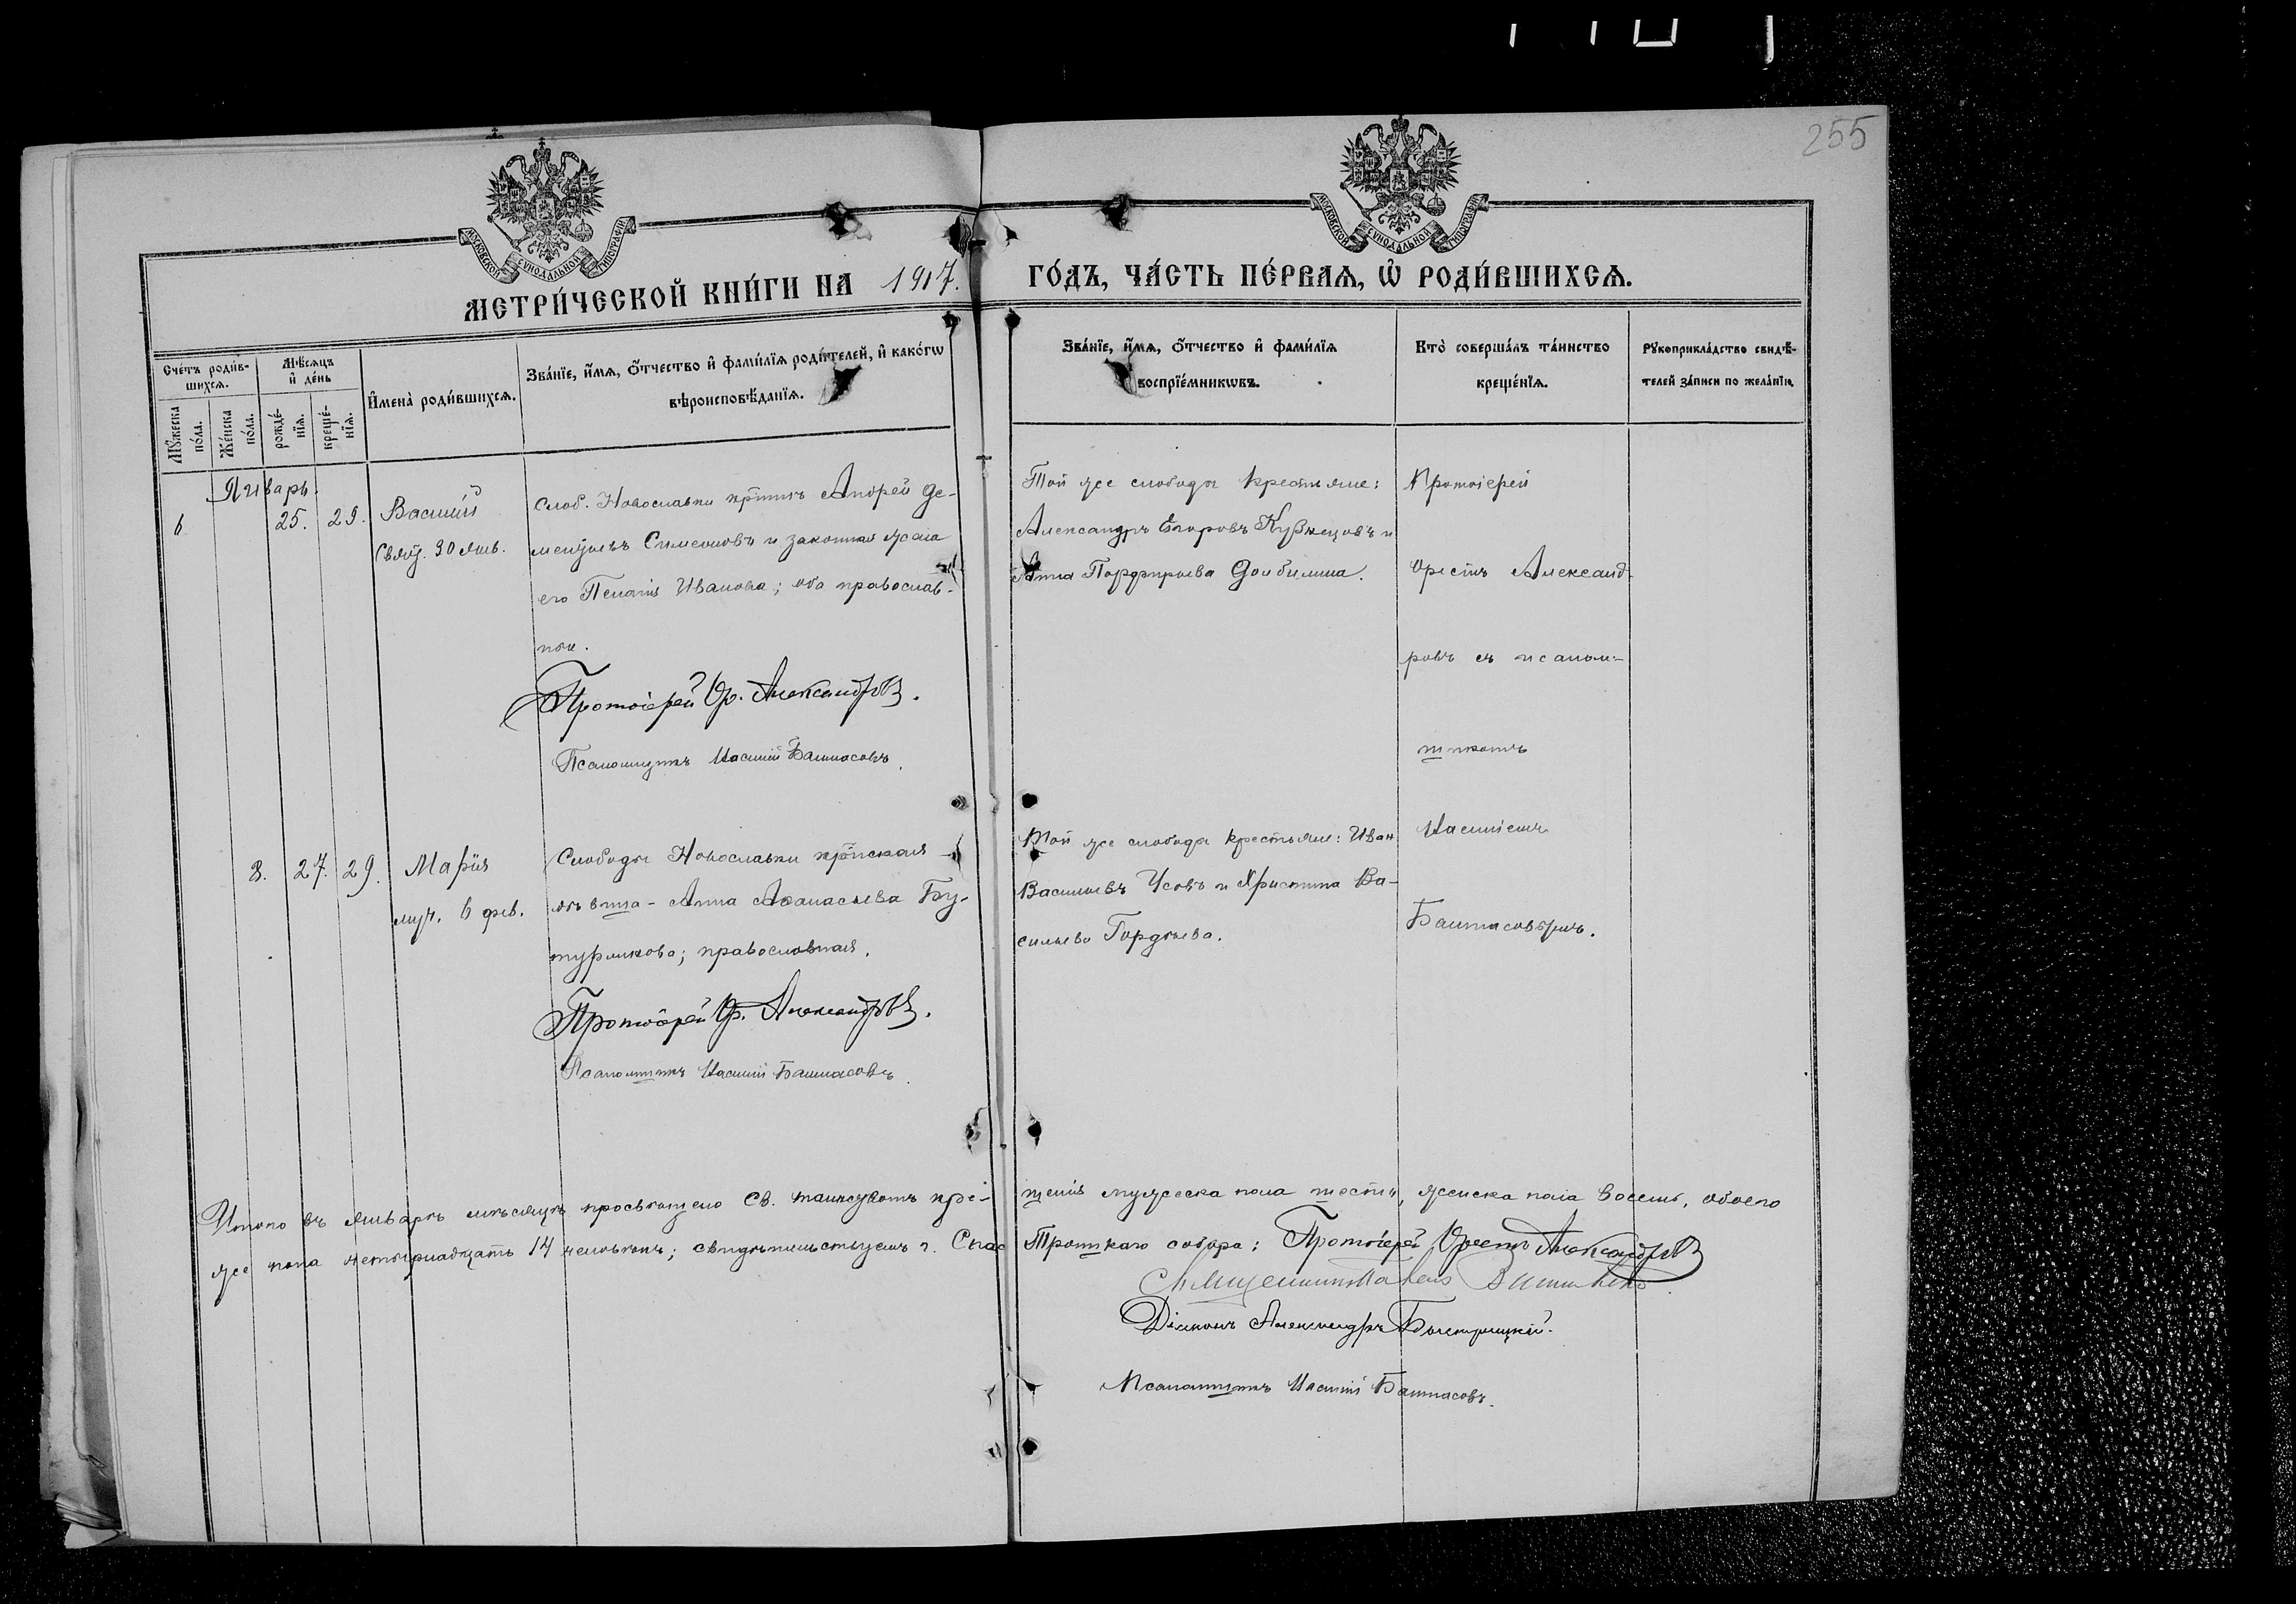 255
МОСКОВСКОЙ СѴНОДАЛЬНОЙ ТИПОГРАФІИ
МОСКОВСКОЙ СѴНОДАЛЬНОЙ ТИПОГРАФІИ
МЕТРИ́ЧЕСКОЙ КНИ́ГИ НА 1917.
ГО́ДЪ, ЧА́СТЬ ПЕ́РВАЯ, Ѽ РОДИ́ВШИХСЯ.
Сче́тъ роди́в-
шихся.
Мꙋ́жеска по́ла.
Же́нска по́ла.
Мѣ́сяцъ и҆ де́нь
рожде́-нїя.
креще́-нїя.
И҆мена̀ роди́вшихся.
Зва́нїе, и҆́мя, ѻ҆́тчество и҆ фами́лїя роди́телей, и҆ како́гѡ
вѣроисповѣ́данїя.
Зва́нїе, и҆́мя, ѻ҆́тчество и҆ фами́лїя
воспрїе́мникѡвъ.
Кто̀ соверша́лъ та́инство
креще́нїя.
Рꙋкоприкла́дство свидѣ́-
телей за́писи по жела́нїю.
Январь.
6. 25. 29. Василій
Свящ. 30 янв.
Слоб. Новославки кр-нинъ Андрей Де-
ментьевъ Симеоновъ и законная жена
его Пелагія Иванова; оба православ-
ные.
Протоіерей Ор. Александровъ.
Псаломщикъ Василій
Той же слободы крестьяне:
Александръ Егоровъ Кузнецовъ и
Анна Порфирьева
Протоіерей
Орестъ Александ-
ровъ съ псалом-
щикомъ
Василіемъ
8. 27. 29. Марія
муч. 6 фев.
Слободы Новославки кр-нская
дѣвица - Анна Аѳанасьева Бу-
турликова; православная.
Протоіерей Ор. Александровъ.
Псаломщикъ Василій
Той же слободы крестьяне: Иван
Васильевъ Усовъ и Христина Ва-
сильева Гордѣева.
Итого въ январѣ мѣсяцѣ просвѣщено Св. таинствомъ кре-
щенія мужеска пола шесть, женска пола восемь, обоего
же пола четырнадцать 14 человѣкъ; свидѣтельствуемъ г. Спас
Троицкаго собора: Протоіерей Орестъ Александровъ
Священникъ Павелъ
Діаконъ Александръ Быстрицкій.
Псаломщикъ Василій